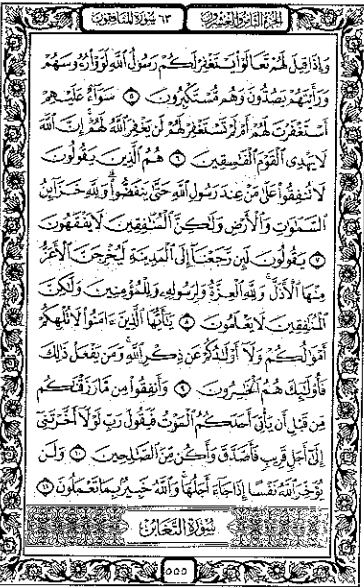 الجزء الثامن والعشرون ٦٣ سورة المنافقون
وَإِذَا قِيلَ لَهُمْ تَعَالَوْا۟ يَسْتَغْفِرْ لَكُمْ رَسُولُ ٱللَّهِ لَوَّوْا۟ رُءُوسَهُمْ
وَرَأَيْتَهُمْ يَصُدُّونَ وَهُم مُّسْتَكْبِرُونَ ٥ سَوَآءٌ عَلَيْهِمْ
أَسْتَغْفَرْتَ لَهُمْ أَمْ لَمْ تَسْتَغْفِرْ لَهُمْ لَن يَغْفِرَ ٱللَّهُ لَهُمْ إِنَّ ٱللَّهَ
لَا يَهْدِى ٱلْقَوْمَ ٱلْفَٰسِقِينَ ٦ هُمُ ٱلَّذِينَ يَقُولُونَ
لَا تُنفِقُوا۟ عَلَىٰ مَنْ عِندَ رَسُولِ ٱللَّهِ حَتَّىٰ يَنفَضُّوا۟ وَلِلَّهِ خَزَآئِنُ
ٱلسَّمَٰوَٰتِ وَٱلْأَرْضِ وَلَٰكِنَّ ٱلْمُنَٰفِقِينَ لَا يَفْقَهُونَ
٧ يَقُولُونَ لَئِن رَّجَعْنَآ إِلَى ٱلْمَدِينَةِ لَيُخْرِجَنَّ ٱلْأَعَزُّ
مِنْهَا ٱلْأَذَلَّ وَلِلَّهِ ٱلْعِزَّةُ وَلِرَسُولِهِۦ وَلِلْمُؤْمِنِينَ وَلَٰكِنَّ
ٱلْمُنَٰفِقِينَ لَا يَعْلَمُونَ ٨ يَٰٓأَيُّهَا ٱلَّذِينَ ءَامَنُوا۟ لَا تُلْهِكُمْ
أَمْوَٰلُكُمْ وَلَآ أَوْلَٰدُكُمْ عَن ذِكْرِ ٱللَّهِ وَمَن يَفْعَلْ ذَٰلِكَ
فَأُو۟لَٰٓئِكَ هُمُ ٱلْخَٰسِرُونَ ٩ وَأَنفِقُوا۟ مِن مَّا رَزَقْنَٰكُم
مِّن قَبْلِ أَن يَأْتِىَ أَحَدَكُمُ ٱلْمَوْتُ فَيَقُولَ رَبِّ لَوْلَآ أَخَّرْتَنِىٓ
إِلَىٰٓ أَجَلٍ قَرِيبٍ فَأَصَّدَّقَ وَأَكُن مِّنَ ٱلصَّٰلِحِينَ ١٠ وَلَن
يُؤَخِّرَ ٱللَّهُ نَفْسًا إِذَا جَآءَ أَجَلُهَا وَٱللَّهُ خَبِيرٌۢ بِمَا تَعْمَلُونَ ١١
سورة التغابن
٥٥٥